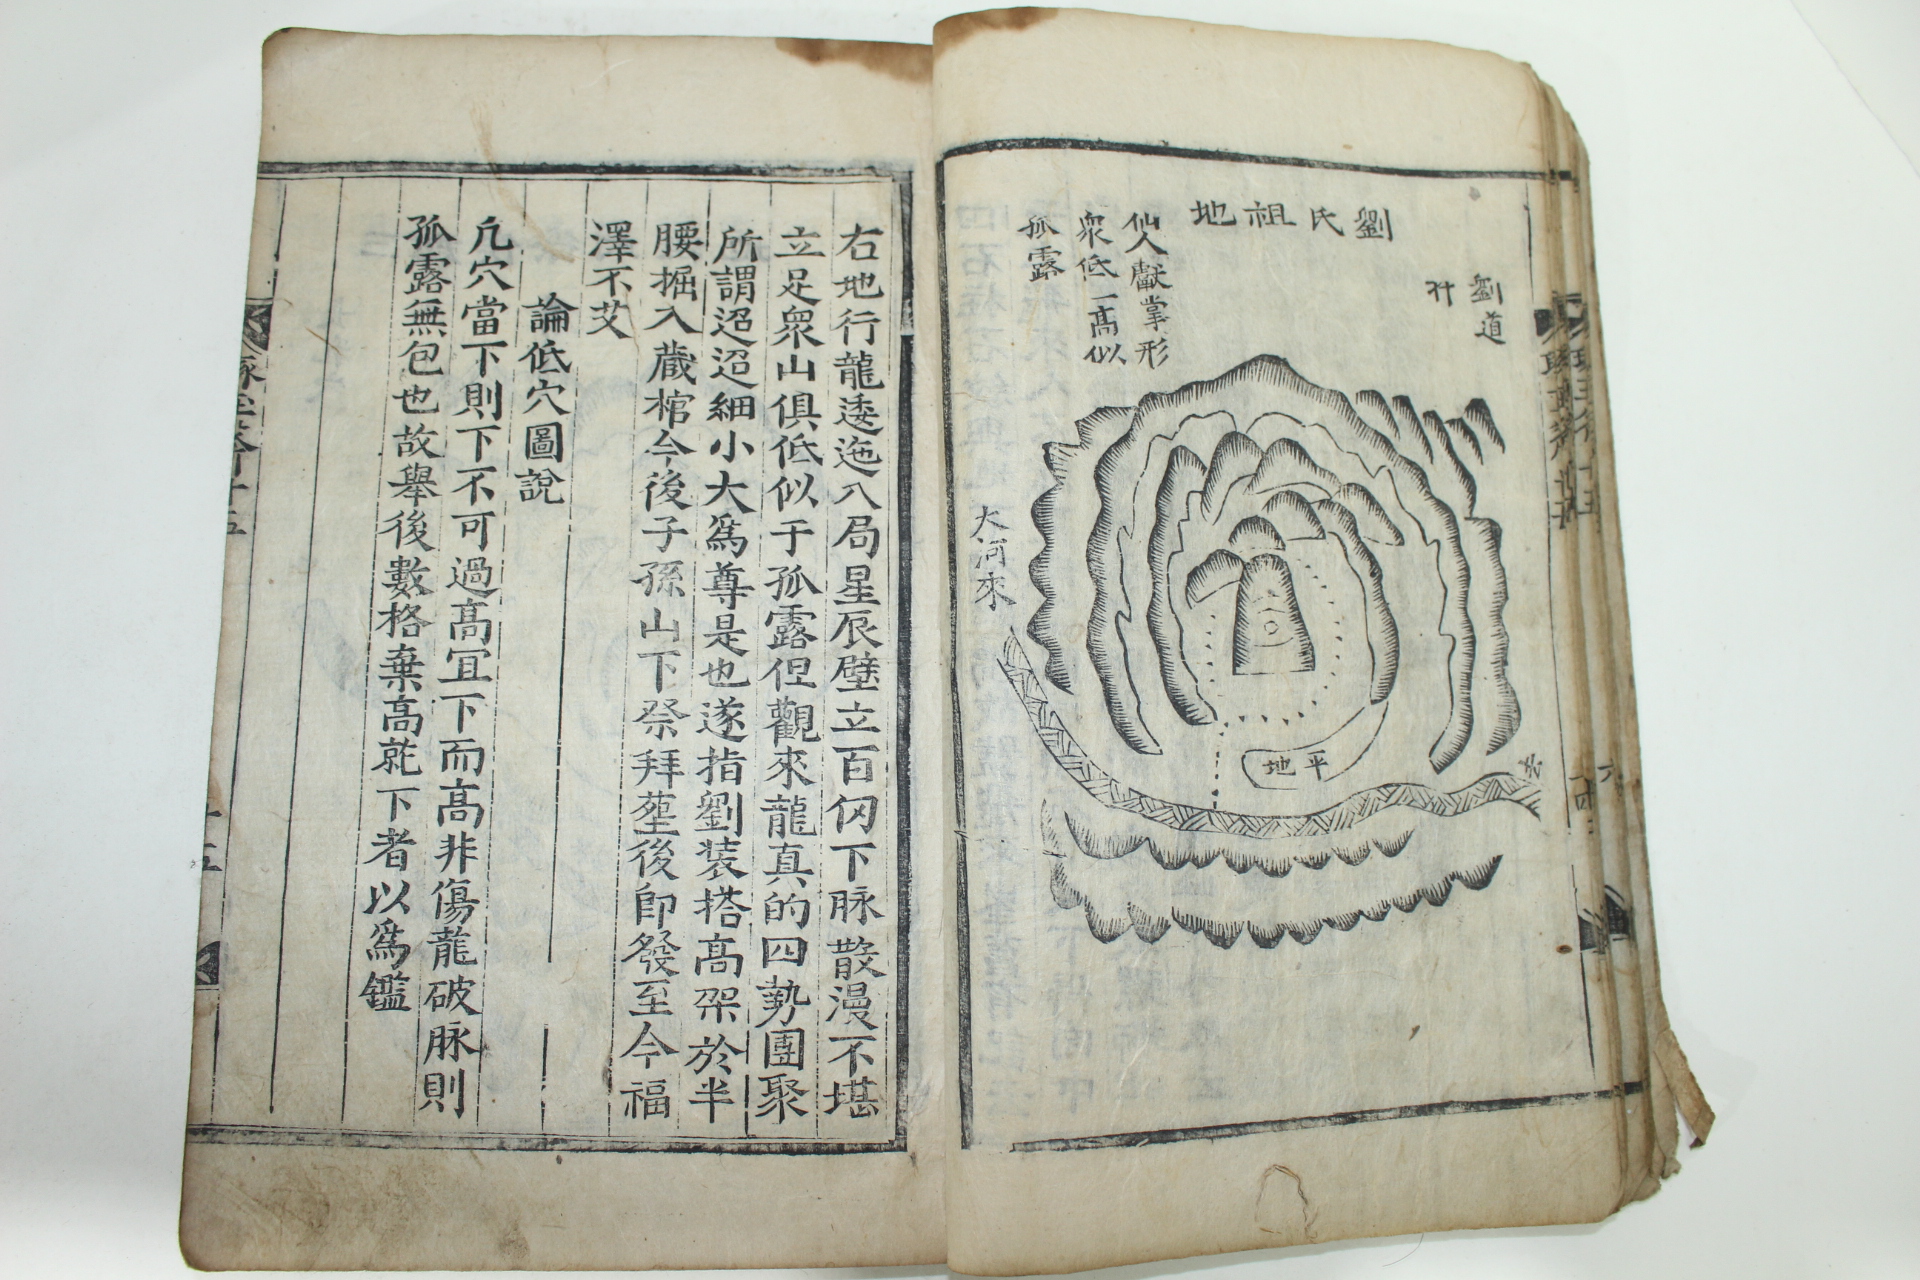 劉氏祖地
劉道
仙人獻掌形
衆低一高似
孤露
大河來
平地
去
右地行龍逶迤入局星辰壁立百仭下脉散漫不堪
立足衆山俱低似于孤露但觀來龍真的四勢團聚
所謂迢迢細小大爲尊是也遂指劉装搭高架於半
腰掘入藏棺今後子孫山下祭拜塟後即發至今福
澤不艾
論低穴圖說
凢穴當下則下不可過高冝下而高非傷龍破脉則
孤露無包也故舉後數格棄高就下者以爲鑑